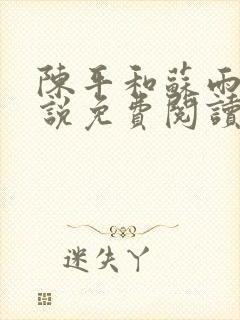 陳平和蘇雨
說免費閱讀
迷失丫